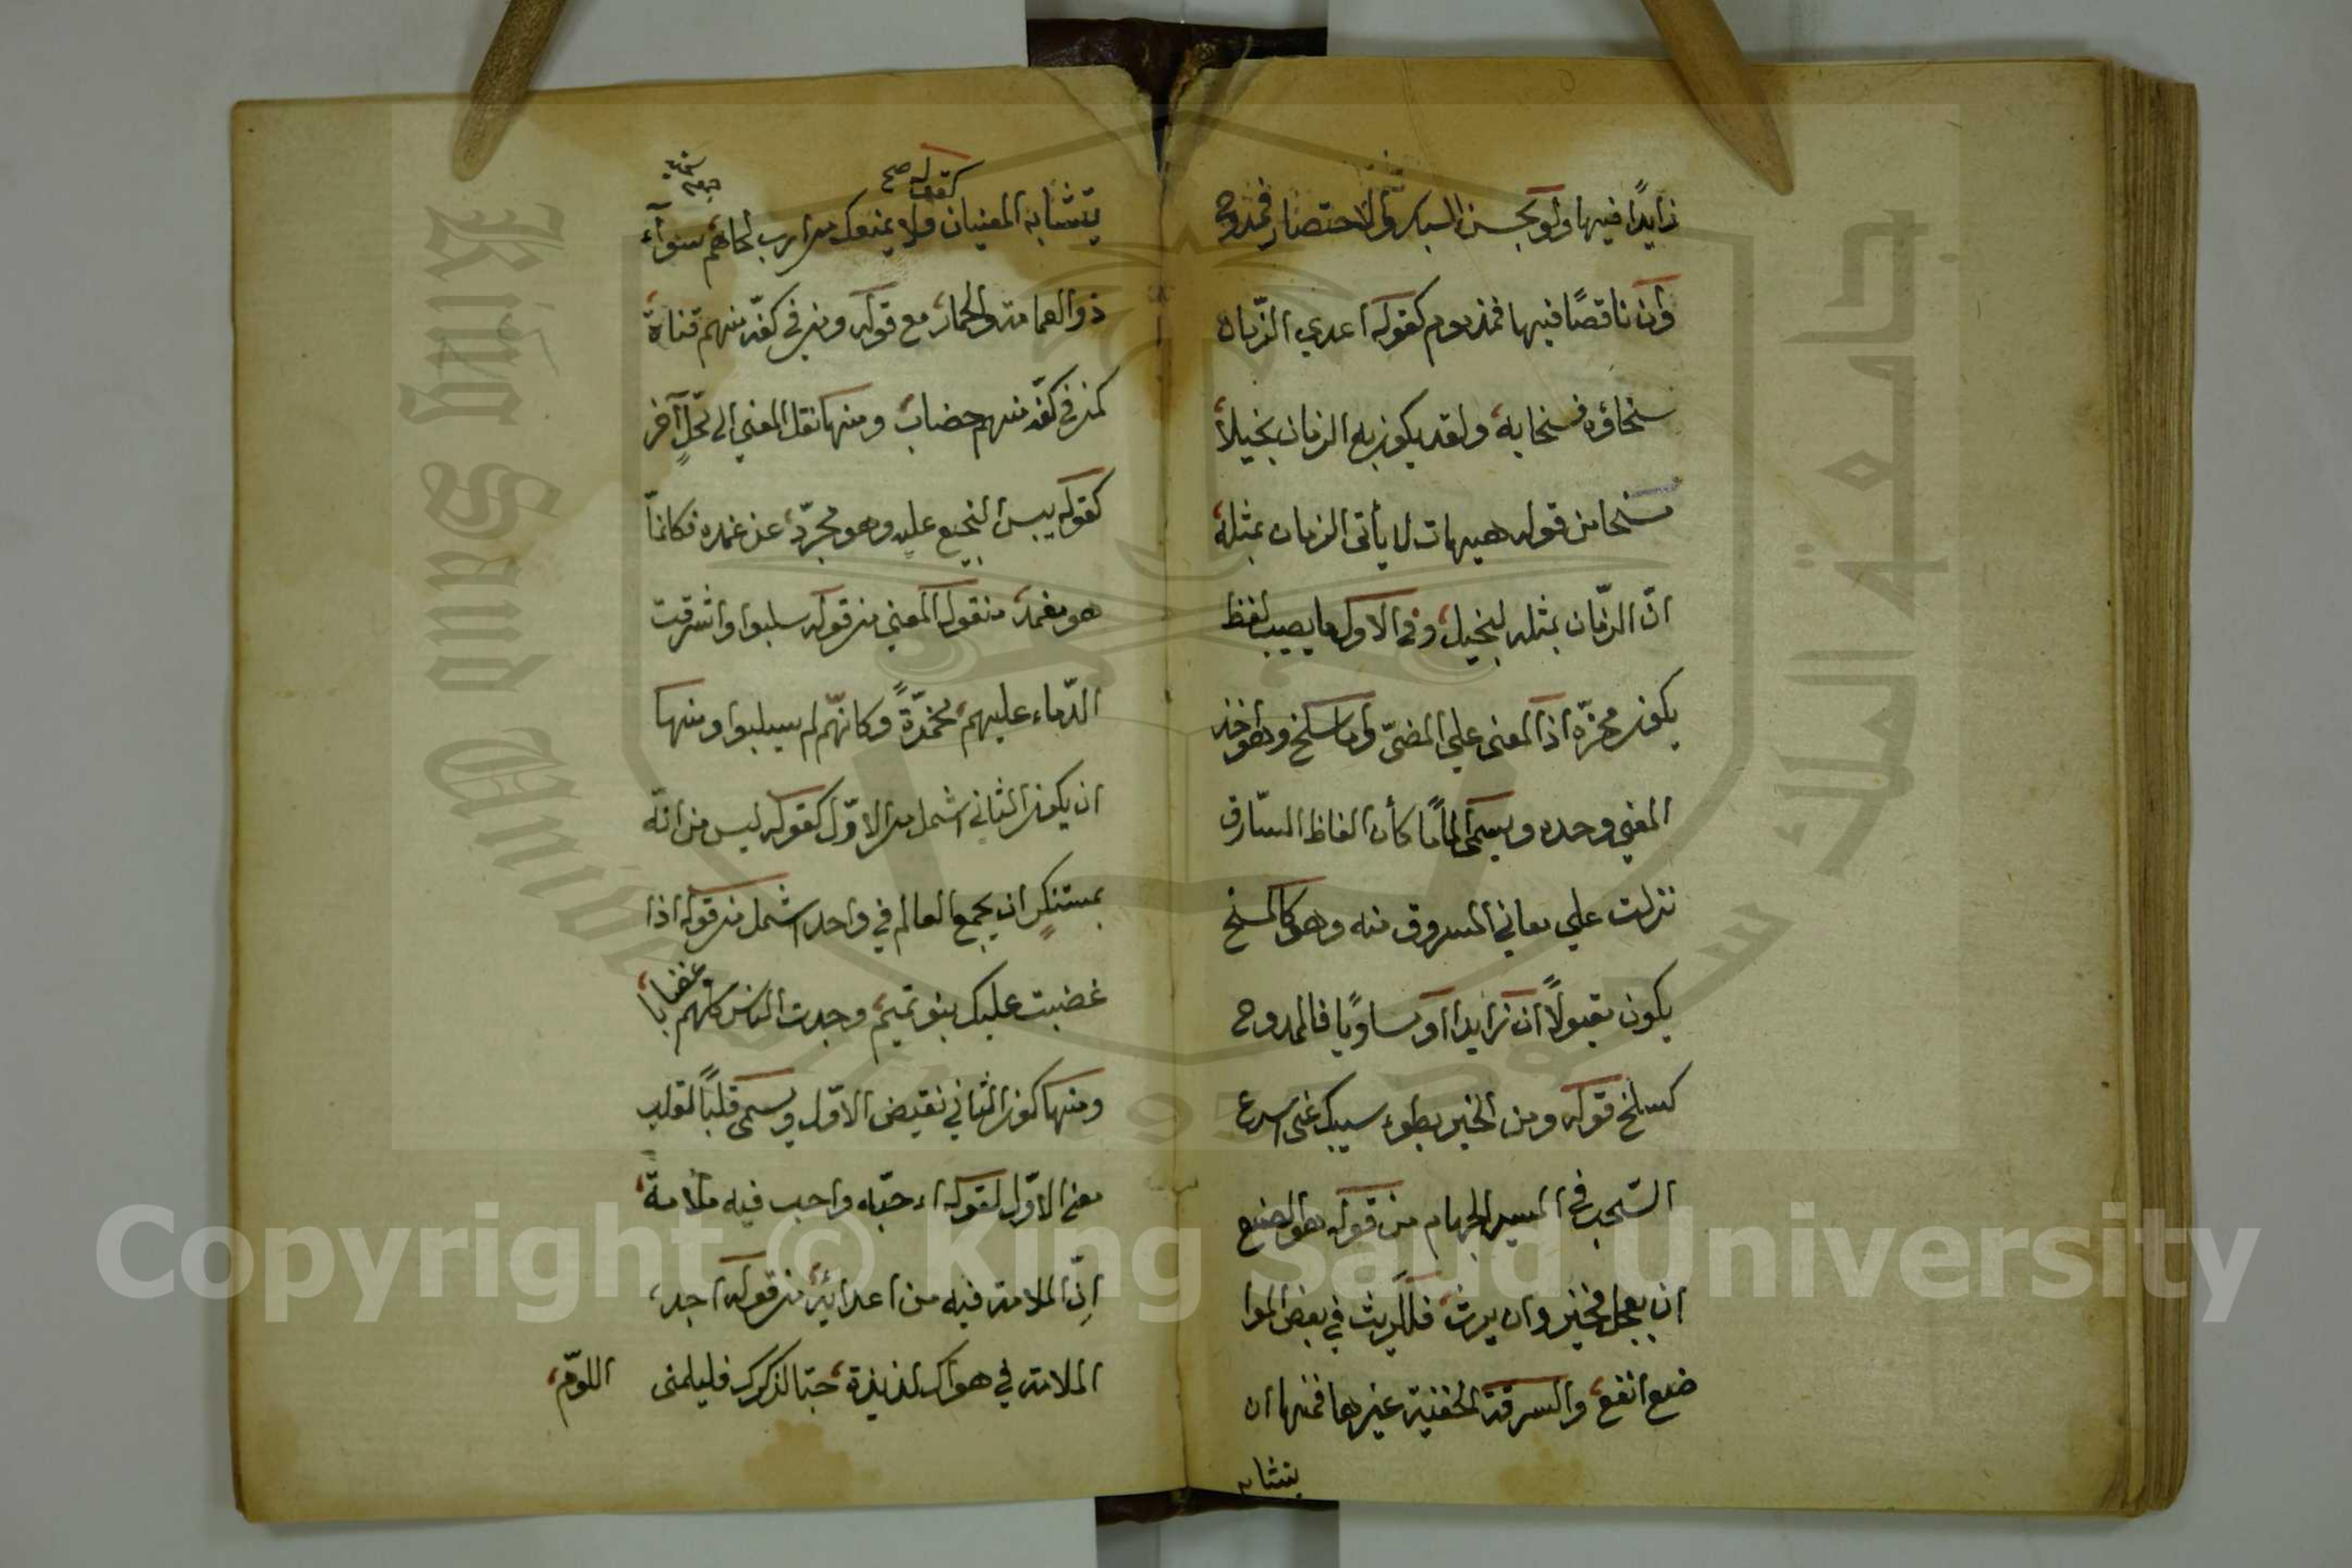 زايدًا فيها ولو بحسن السبك والاختصار فممدوح
وان ناقصًا فيها فمذموم كقوله اعدي الزّمان
سخاؤه فسخا به ولقد يكون به الزمان بخيلاً
من قوله هيهات لا يأتى الزمان بمثله
انّ الزّمان بمثله لبخيل وفى الاول ما يصيب لفظ
يكون مخرّه اذ المعنى علي المضىّ واما سلخ وهو اخذ
المعني وحده ويسمى المامًا كأن الفاظ السّارق
نزلت علي معاني المسروق منه وهو كالمسخ
يكون مقبولاً ان زايدا او مساويًا فالممدوح
كسلخ قوله ومن الخير بطوء سيبك عنى اسرع
السّحب فى المسير الجهام من قوله هو الصنع
ان يعجل فخير وان يرث فللريث في بعض الموا
ضع انفع والسرقة الخفيّة غيرها فمنها ان
يتشابه
كقوله صح
يتشابه المعنيان ولا يمنعك من ارب لحاهم سوآء
ذو العمامة والخمار مع قوله ومن في كفّه منهم قناة
كمن في كفّه منهم خضاب ومنها نقل المعني الى محلّ آخر
كقوله يبس النجيع عليه وهو مجرّد عن غمده فكانما
هو مغمد منقول المعني من قوله سلبوا واشرقت
الدّماء عليهم محمرّةً وكانّهم لم يسلبوا ومنها
ان يكون الثاني اشمل من الاوّل كقوله ليس من الله
بمستنكر ان يجمع العالم في واحد اشمل من قوله اذا
غضبت عليك بنو تميم وجدت الناس كلهم غضابا
ومنها كون الثاني نقيض الاوّل ويسمى قلبًا لقلب
معنى الاوّل كقوله اءحبّه واحب فيه ملامة
اِنّ الملامة فيه من اعدائه من قوله اجد
الملامة في هواك لذيذة حبّا لذكرك فليلمنى اللوّم